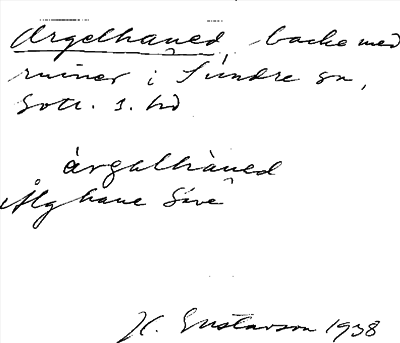 Argelhaued, backe med
ruiner i Sundre sn,
Gotl. s. hd
àrgalhàued
H. Gustavson 1938